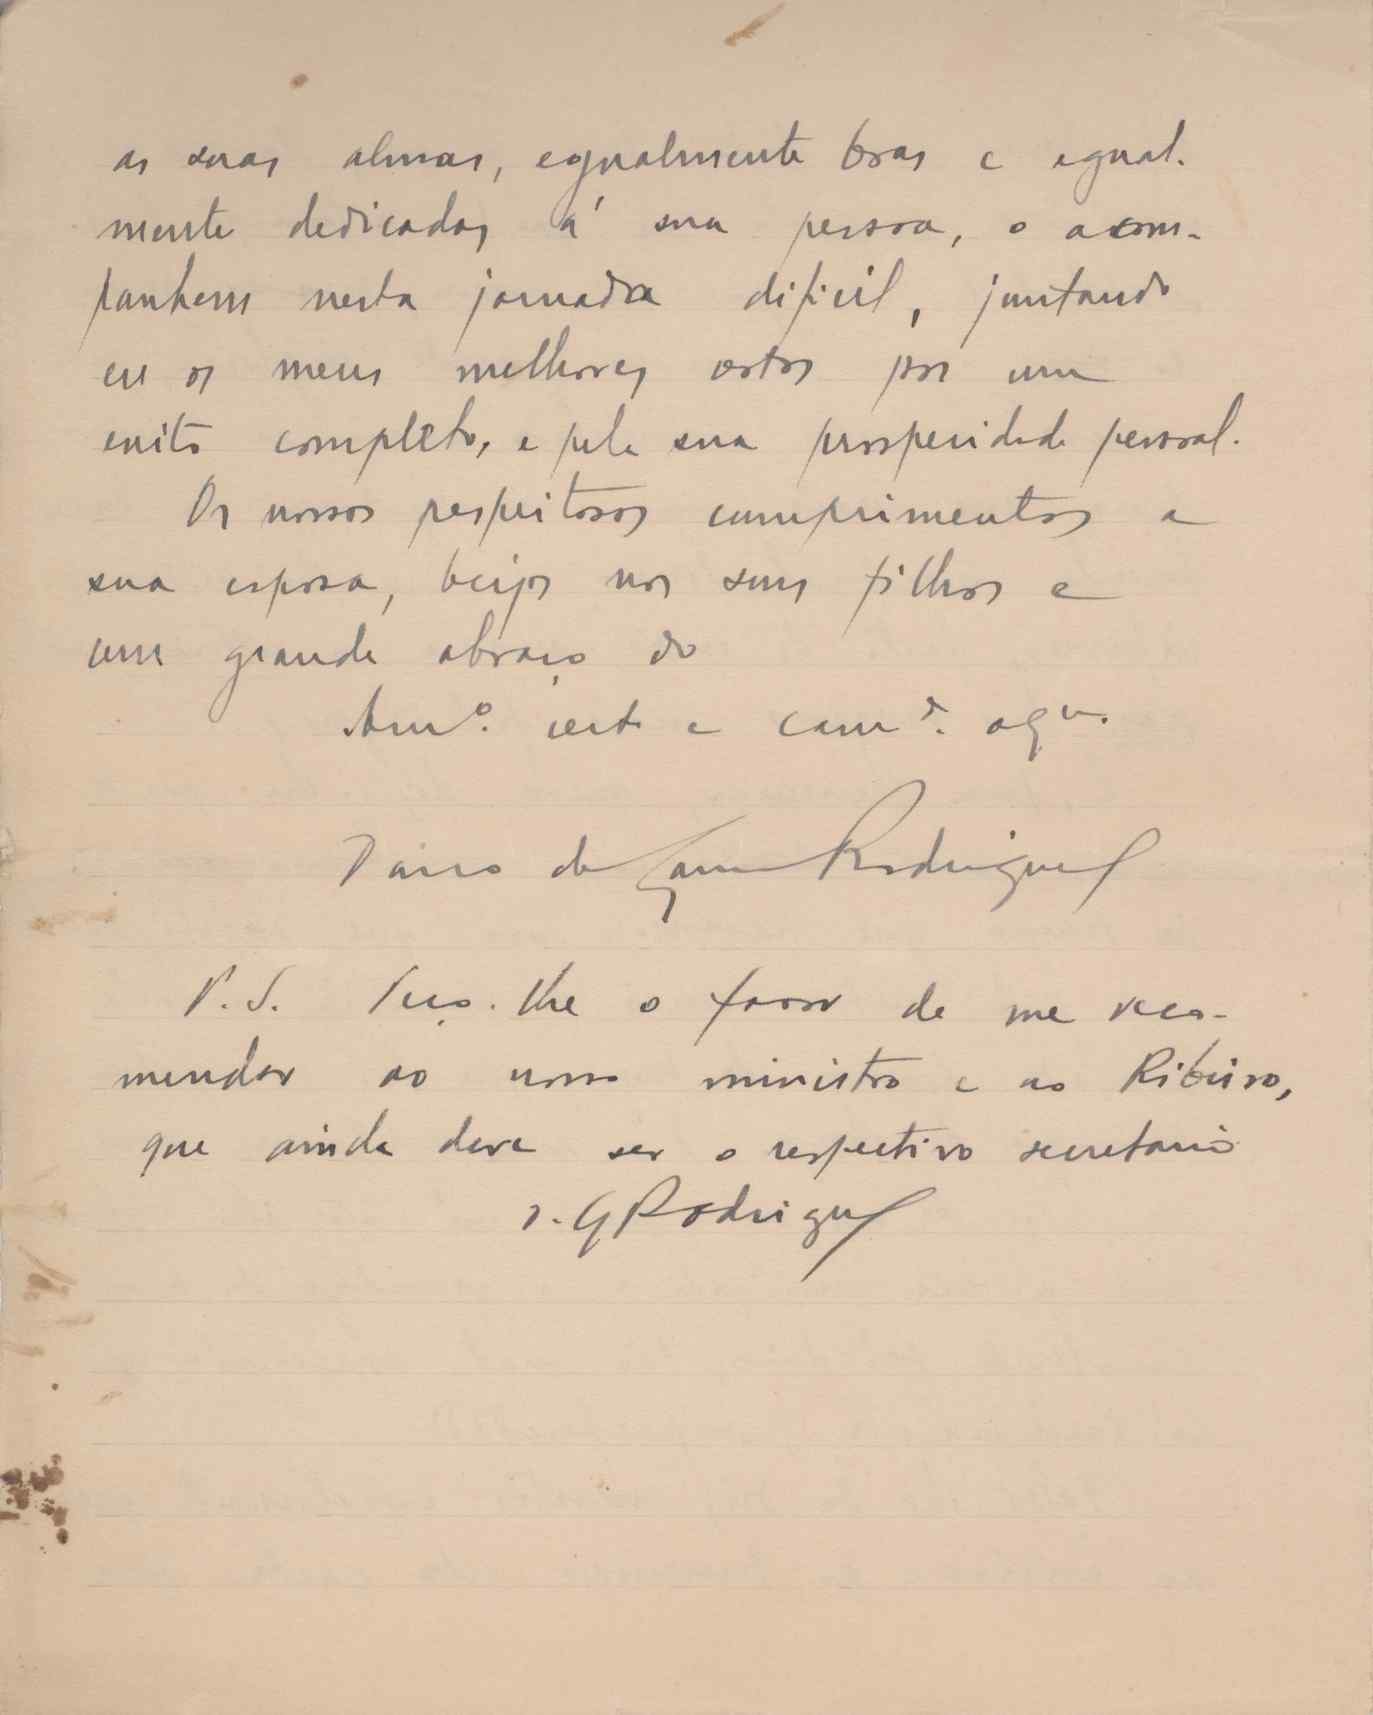 as suas almas, egualmente boas e egual-
mente dedicadas á sua pessoa, o acom-
panhem nesta jornada dificil, juntando
eu os meus melhores votos por um
exito completo, e pela sua prosperidade pessoal.
Os nossos respeitosos cumprimentos a
sua esposa, beijos nos seus filhos e
um grande abraço do
Amº. certo e camª. agº.
Dario de Gama Rodrigues
P.S. Peço-lhe o favor de me reco-
mendar ao nosso ministro e ao Ribeiro,
que ainda deve ser o respectivo secretario
D. G Rodrigues